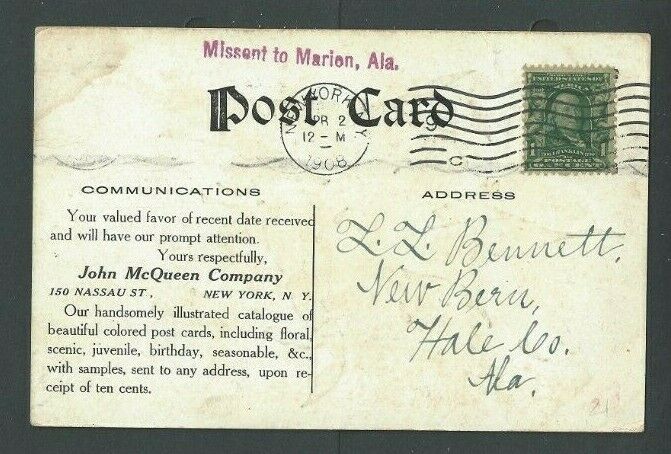 Missent to Marion, Ala.
Post Card
NEW YORK, N.Y.
APR 2
12-M
1908
9
C
UNITED STATES OF
1 FRANKLIN 1
POSTAGE
ONE CENT
COMMUNICATIONS
Your valued favor of recent date received
and will have our prompt attention.
Yours respectfully,
John McQueen Company
150 NASSAU ST, NEW YORK, N. Y.
Our handsomely illustrated catalogue of
beautiful colored post cards, including floral,
scenic, juvenile, birthday, seasonable, &c.,
with samples, sent to any address, upon re-
ceipt of ten cents.
ADDRESS
L. L. Bennett.
New Bern,
Hale Co.
Ala.